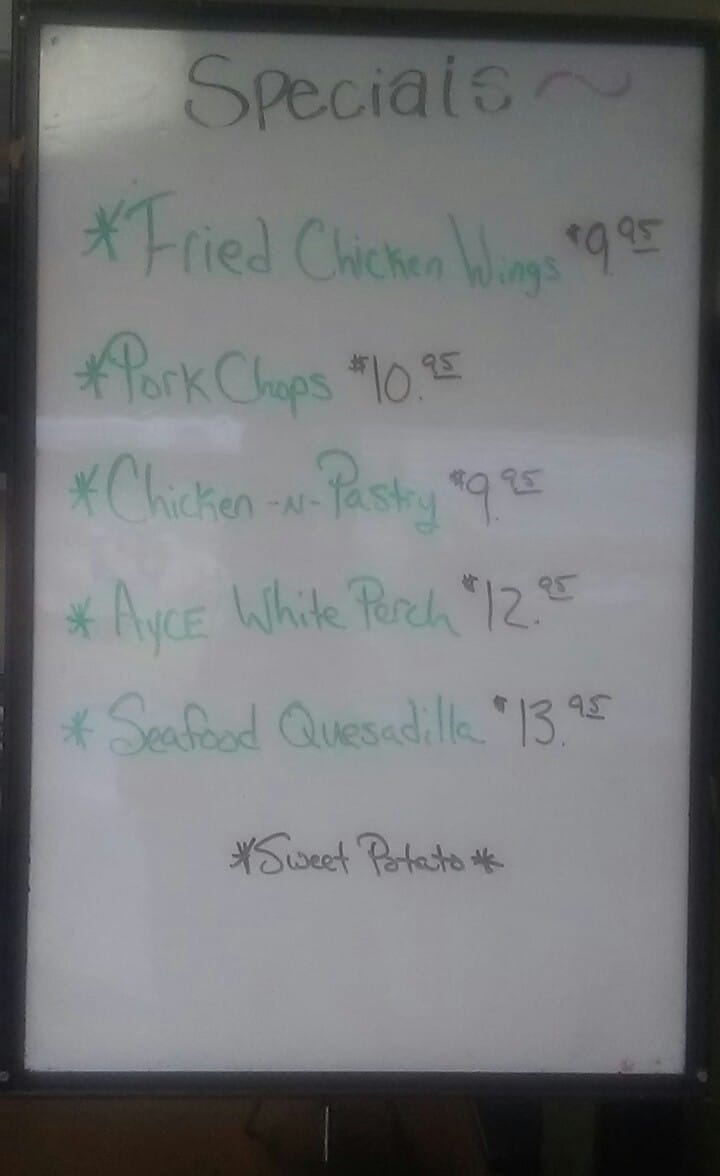 Specials ~
*Fried Chicken Wings $9.95
*Pork Chops $10.95
*Chicken -N- Pastry $9.95
*AYCE White Perch $12.95
*Seafood Quesadilla $13.95
*Sweet Potato*